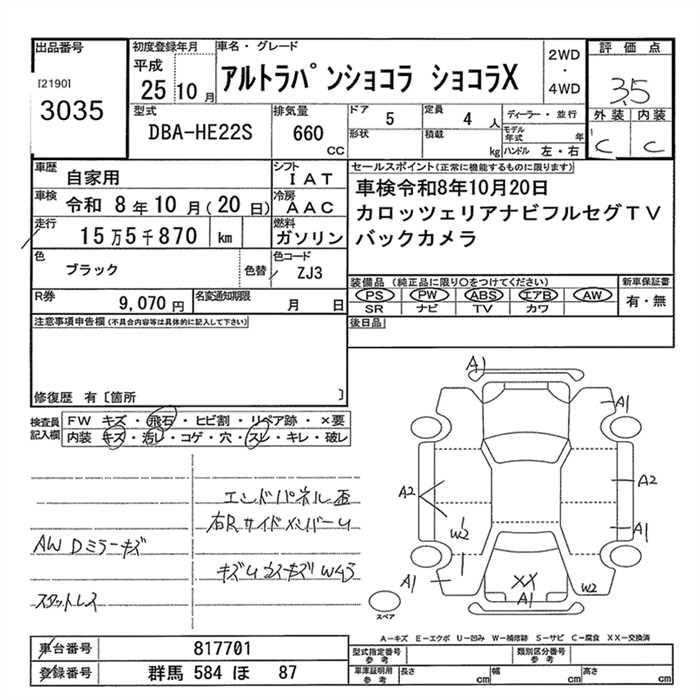 出品番号
[2190]
3035
初度登録年月
平成
25 10 月
車名・グレード
アルトラパンショコラ ショコラX
2WD
・
4WD
評価点
3.5
外装 内装
C C
型式
DBA-HE22S
排気量
660
CC
ドア 5
定員 4 人
形状
積載 kg
ディーラー・並行
モデル年式 年
ハンドル 左・右
車歴 自家用
シフト IAT
車検 令和 8 年 10 月 ( 20 日)
冷房 AAC
走行 15万5千870 km
燃料 ガソリン
色 ブラック
色替
色コード ZJ3
R券 9,070 円
名変通知期限 月 日
セールスポイント(正常に機能するものに限ります)
車検令和8年10月20日
カロッツェリアナビフルセグTV
バックカメラ
装備品 (純正品に限り○をつけてください)
新車保証書
PS PW ABS エアB AW
有・無
SR ナビ TV カワ
後日品
注意事項申告欄(不具合内容等は具体的に記入して下さい)
修復歴 有〔箇所 〕
検査員記入欄
FW キズ・飛石・ヒビ割・リペア跡・×要
内装 キズ・汚レ・コゲ・穴・スレ・キレ・破レ
エンドパネル歪
右Rサイドメンバーu
AW Dミラーキズ
スタットレス
A1
A1
A2
A2
A1
W2
A1
XX
A1
W2
スペア
A−キズ E−エクボ U−凹み W−補修跡 S−サビ C−腐食 XX−交換済
車台番号 817701
登録番号 群馬 584 ほ 87
型式指定番号 参考
類別区分番号 参考
車庫証明用 参考
長さ cm
幅 cm
高さ cm